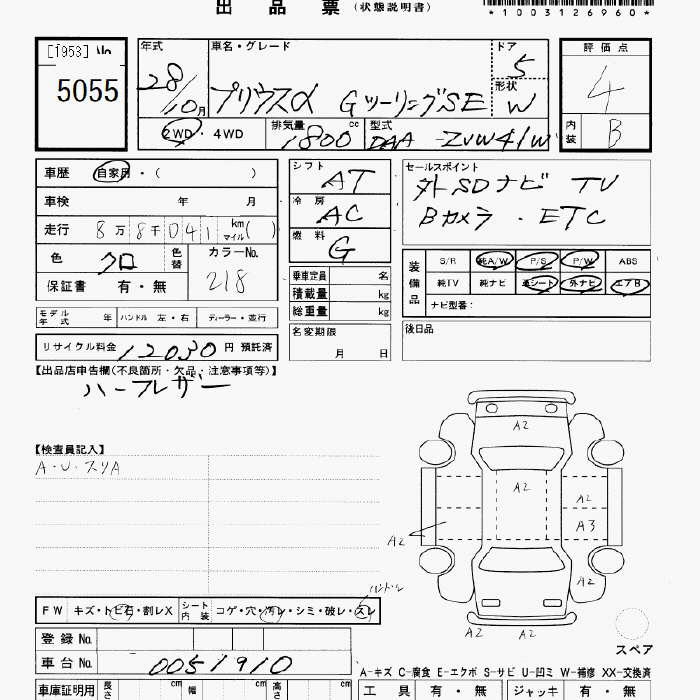 出品票 (状態説明書)
*1003126960*
[1953] No
5055
年式 28/10月
車名・グレード プリウスα GツーリングSE
ドア 5
形状 W
2WD・4WD 排気量 1800 cc 型式 DAA-ZVW41W
評価点 4
内装 B
車歴 自家用・( )
車検 年 月
走行 8万8千041 km マイル( )
色 クロ 色替 カラーNo. 218
保証書 有・無
シフト AT
冷房 AC
燃料 G
乗車定員 名
積載量 kg
総重量 kg
名変期限 月 日
セールスポイント
外SDナビ TV
Bカメラ・ETC
装備品 S/R 純A/W P/S P/W ABS
純TV 純ナビ 革シート 外ナビ エアB
ナビ型番:
後日品
モデル年式 年 ハンドル 左・右 ディーラー・並行
リサイクル料金 12030 円 預託済
【出品店申告欄(不良箇所・欠品・注意事項等)】
ハーフレザー
【検査員記入】
A・U・スリA
A2
A2
A2
A3
A2
A2
A2 A2
ハンドル
FW キズ・トビ石・割レX シート内装 コゲ・穴・汚レ・シミ・破レ・スレ
スペア
登録No.
車台No. 0051910
A-キズ C-腐食 E-エクボ S-サビ U-凹ミ W-補修 XX-交換済
車庫証明用 長さ cm 幅 cm 高さ cm
工具 有・無 ジャッキ 有・無